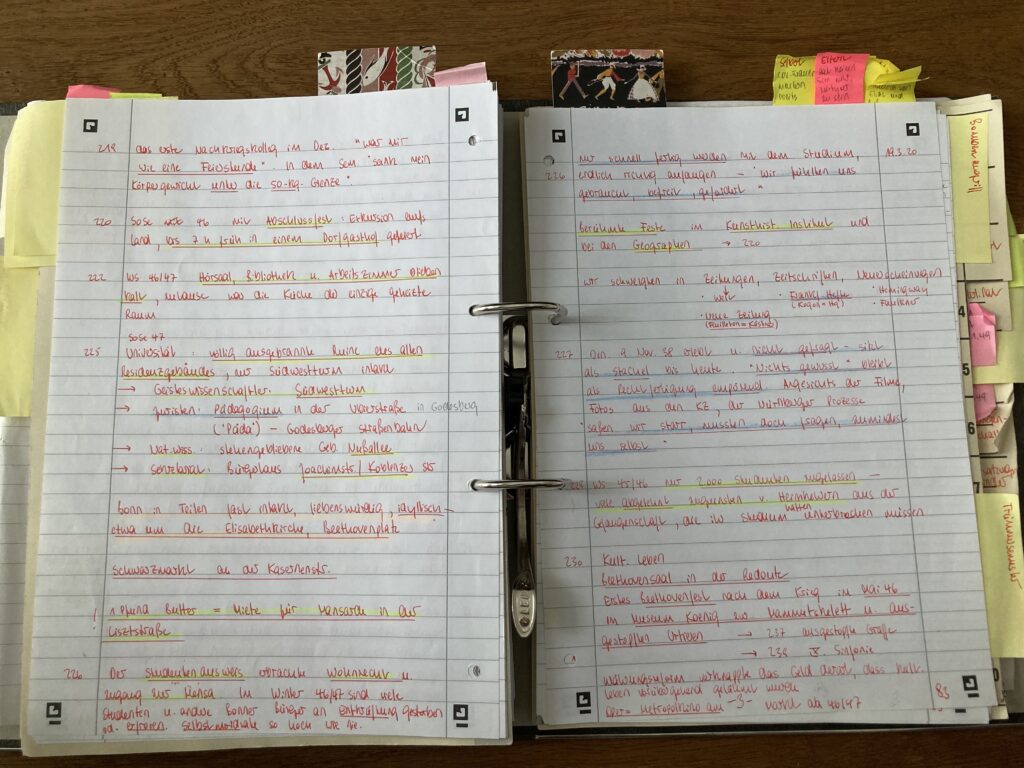 219 das erste Nachkriegskolleg im Dez. "war mir
wie eine Feierstunde". In dem Sem "sank mein
Körpergewicht unter die 50-kg-Grenze".
220 SoSe 46 mit Abschlussfest: Exkursion aufs
Land, bis 7 h früh in einem Dorfgasthof gefeiert
222 WS 46/47 Hörsaal, Bibliothek u. Arbeitszimmer
kalt, zuhause war die Küche der einzige geheizte
Raum
SoSe 47
225 Universität: völlig ausgebrannte Ruine des alten
Residenzgebäudes, nur Südwestturm intakt
→ Geisteswissenschaftler: Südwestturm
→ Juristen: Pädagogium in der Straße in Godesberg
("Päda") – Godesberger Straßenbahn
→ Nat.wiss.: stehengebliebene Geb. Nußallee
→ Sekretariat: Bürohaus Joachimstr./Koblenzer Str
Bonn in Teilen fast intakt, liebenswürdig, idyllisch –
etwa um die Elisabethkirche, Beethovenplatz
Schwarzmarkt an der Kasernenstr.
! 1 Pfund Butter = Miete für Mansarde in der
Lisztstraße
226 Der Studentenausweis erbrachte Wohnrecht u.
Zugang zur Mensa. Im Winter 46/47 sind viele
Studenten u. andere Bonner Bürger an Entkräftung gestorben
od. erfroren. Selbstmordrate so hoch wie nie.
Eltern
nur schnell fertig werden mit dem Studium, 19.3.20
226 endlich richtig anfangen – "wir fühlten uns
gebraucht, befreit, gefordert"
berühmte Feste im Kunsthist. Institut und
bei den Geographen → 220
wir schwelgten in Zeitungen, Zeitschriften, Neuerscheinungen
• Welt • Frankf. Hefte • Hemingway
(Kogon = Hg) • Faulkner
• Neue Zeitung
(Feuilleton = Kästner)
227 Den 9. Nov. 38 erlebt u. nicht gefragt – sitzt
als Stachel bis heute. "Nichts gewusst" bleibt
als Rechtfertigung empörend. Angesichts der Filme,
Fotos aus den KZ, der Nürnberger Prozesse
"saßen wir starr, mussten doch fragen, zumindest
uns selbst"
228 WS 45/46 nur 2.000 Studenten zugelassen –
viele abgelehnt zugunsten v. Heimkehrern aus der
Gefangenschaft, die ihr Studium unterbrechen müssen
hatten
230 Kult. Leben
Beethovensaal in der Redoute
Erstes Beethovenfest nach dem Krieg im Mai 46
im Museum Koenig zw. Mammutskelett u. aus-
gestopften Urtieren → 237 ausgestopfte Giraffe
→ 238 V. Sinfonie
Währungsreform verknappte das Geld derart, dass kult.
Leben vorübergehend gelähmt wurde
Oper = Metropolkino am -3- Markt ab 46/47
83
Bombenangriff
Trümmersemester